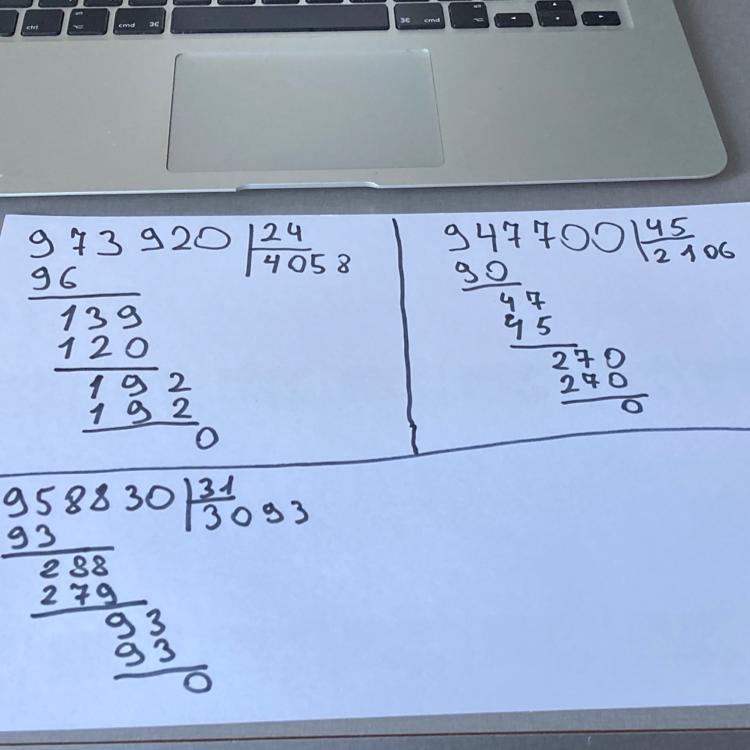 ctrl
cmd ⌘
⌘ cmd
973920 24
96 4058
139
120
192
192
0
947700 45
90 2106
47
45
270
270
0
958830 31
93 3093
288
279
93
93
0